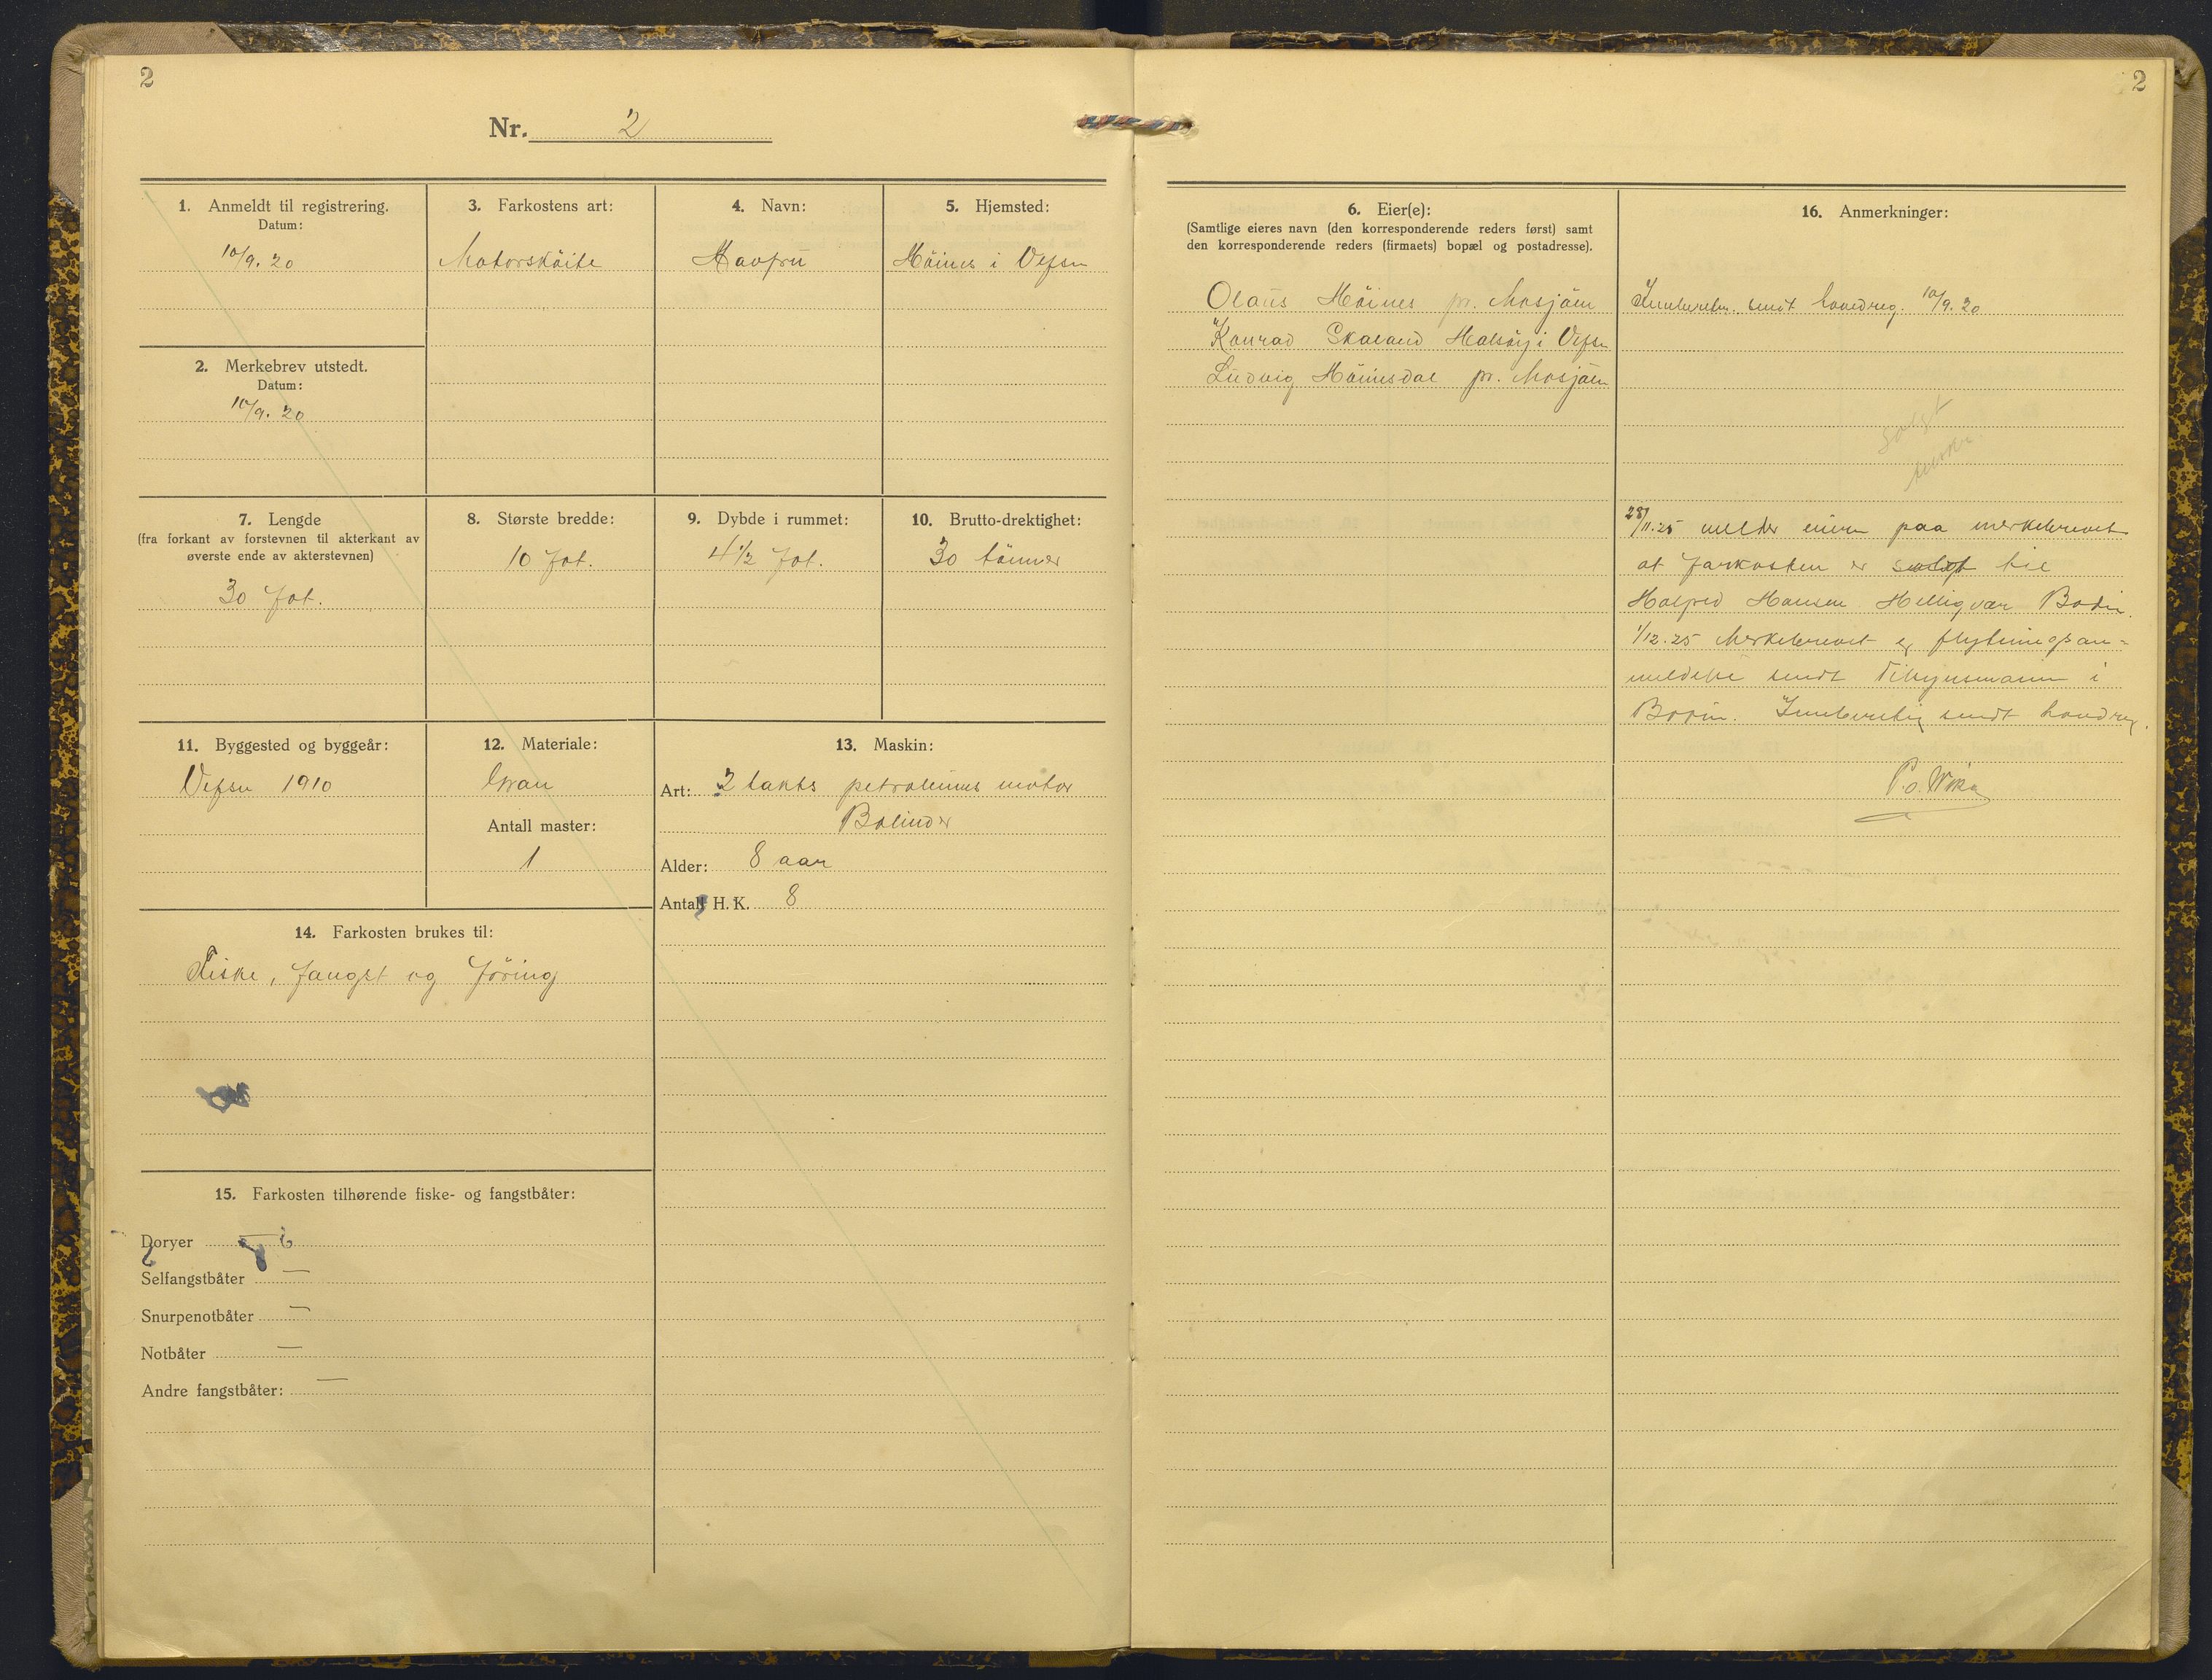 2
Nr. 2
1. Anmeldt til registrering.
Datum:
10/9. 20
2. Merkebrev utstedt.
Datum:
10/9. 20
3. Farkostens art:
Motorskøite
4. Navn:
Havfru
5. Hjemsted:
Høines i Vefsn
7. Lengde
(fra forkant av forstevnen til akterkant av
øverste ende av akterstevnen)
30 fot.
8. Største bredde:
10 fot.
9. Dybde i rummet:
4 1/2 fot.
10. Brutto-drektighet:
30 tønner
11. Byggested og byggeår:
Vefsn 1910
12. Materiale:
Gran
Antall master:
1
13. Maskin:
Art: 2 takts petroleums motor
Bolinder
Alder: 8 aar
Antall H. K. 8
14. Farkosten brukes til:
Fiske, fangst og føring
15. Farkosten tilhørende fiske- og fangstbåter:
Doryer —
Selfangstbåter —
Snurpenotbåter —
Notbåter —
Andre fangstbåter: —
2
6. Eier(e):
(Samtlige eieres navn (den korresponderende reders først) samt
den korresponderende reders (firmaets) bopæl og postadresse).
Olaus Høines pr. Mosjøen
Konrad Skaland Halsøy i Vefsn
Ludvig Høinesdal pr. Mosjøen
16. Anmerkninger:
sendt hovedreg. 10/9. 20
solgt
28/11.25 melder eieren paa merkebrevet
at farkosten er solgt til
Halfred Hansen Helligvær Bodin.
1/12.25 Merkebrevet og flytningsan-
meldelse sendt Tilsynsmann i
Bodin. sendt hovedreg.
P. o. Wika